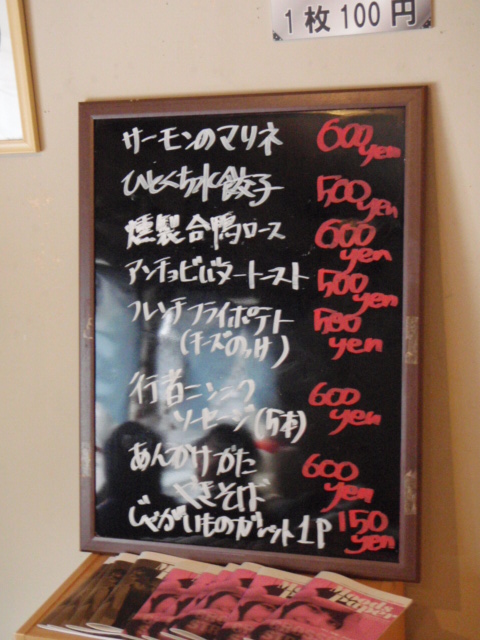 1枚100円
サーモンのマリネ 600yen
ひとくち水餃子 500yen
燻製合鴨ロース 600yen
アンチョビバタートースト 500yen
フレンチフライポテト 580yen
(チーズのっけ)
行者ニンニク 600yen
ソーセージ(5本)
あんかけかた 600yen
やきそば
じゃがいものガレット1P 150yen